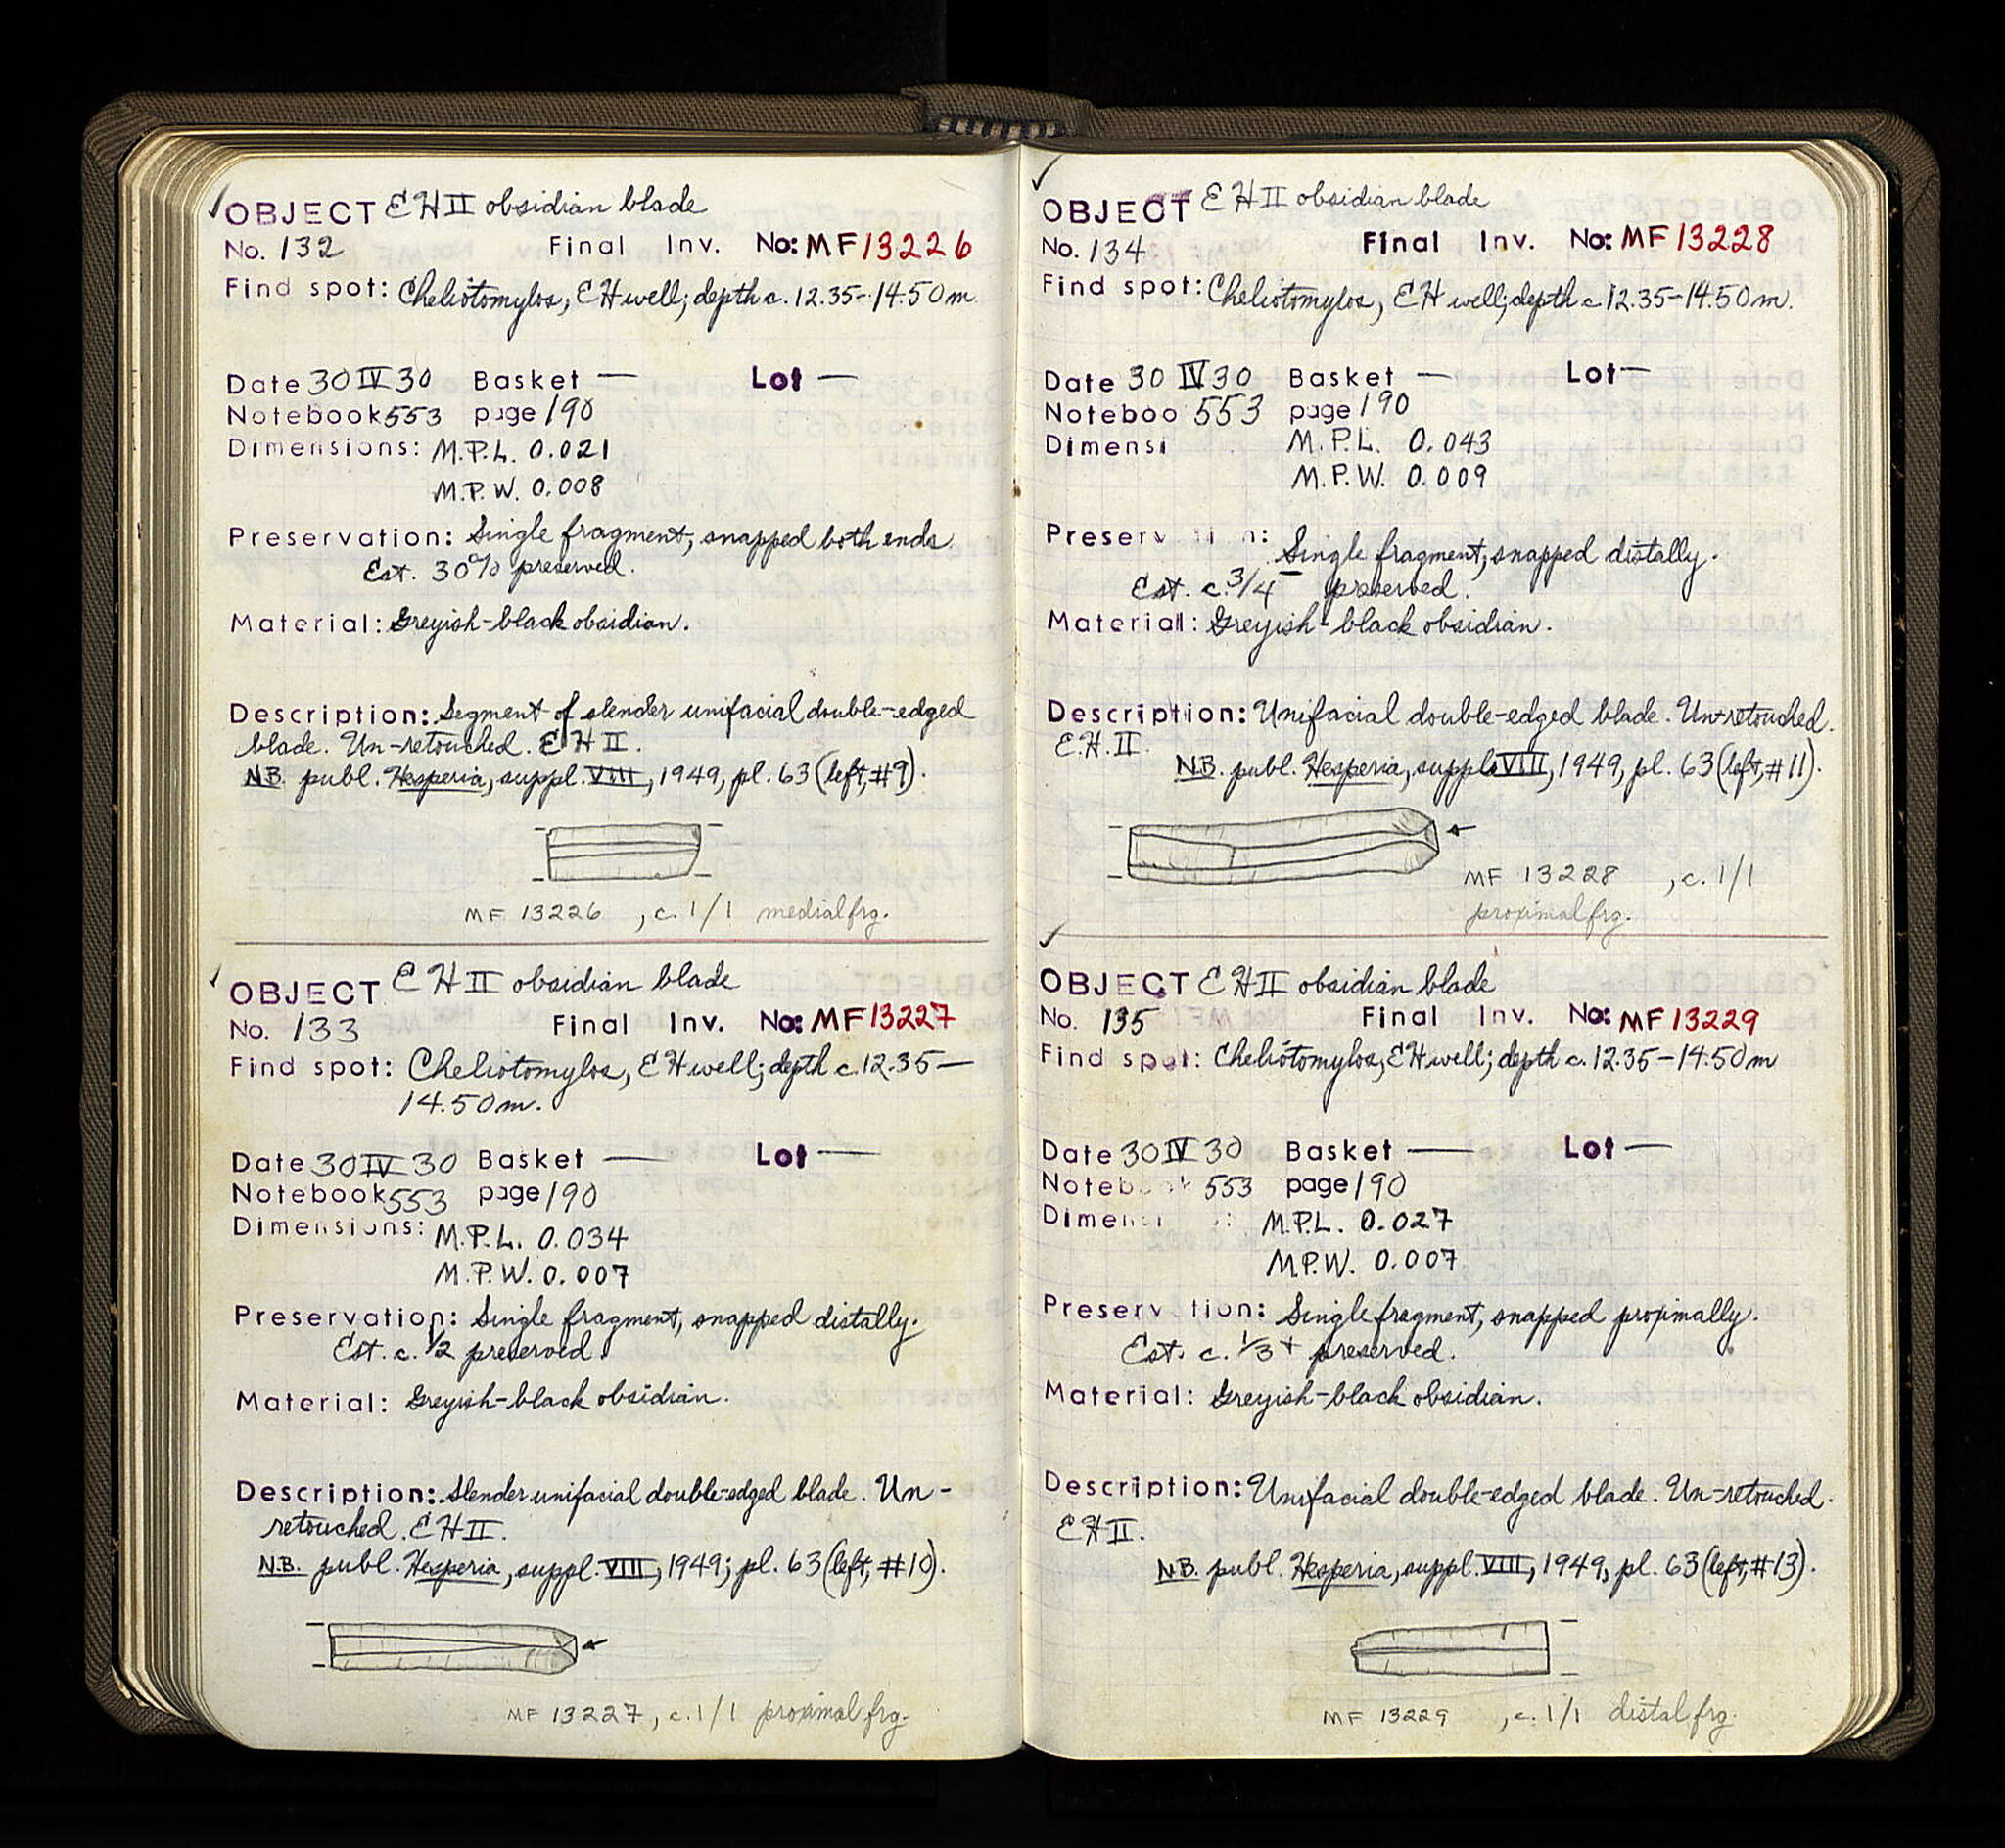 OBJECT EH II obsidian blade
No. 132 Final Inv. No: MF 13226
Find spot: Cheliotomylos, EH well; depth c. 12.35-14.50m
Date 30 IV 30 Basket — Lot —
Notebook 553 page 190
Dimensions: M.P.L. 0.021
M.P.W. 0.008
Preservation: Single fragment, snapped both ends.
Est. 30% preserved.
Material: Greyish-black obsidian.
Description: Segment of slender unifacial double-edged
blade. Un-retouched. EH II.
N.B. publ. Hesperia, suppl. VIII, 1949, pl. 63 (left, #9).
MF 13226 , c. 1/1 medial frg.
OBJECT EH II obsidian blade
No. 133 Final Inv. No: MF 13227
Find spot: Cheliotomylos, EH well; depth c. 12.35—
14.50m.
Date 30 IV 30 Basket — Lot —
Notebook 553 page 190
Dimensions: M.P.L. 0.034
M.P.W. 0.007
Preservation: Single fragment, snapped distally.
Est. c. 1/2 preserved.
Material: Greyish-black obsidian.
Description: Slender unifacial double-edged blade. Un-
retouched. EH II.
N.B. publ. Hesperia, suppl. VIII, 1949; pl. 63 (left, #10).
MF 13227, c. 1/1 proximal frg.
OBJECT EH II obsidian blade
No. 134 Final Inv. No: MF 13228
Find spot: Cheliotomylos, EH well; depth c 12.35-14.50m.
Date 30 IV 30 Basket — Lot —
Noteboo 553 page 190
Dimensi M.P.L. 0.043
M.P.W. 0.009
Preservation: Single fragment, snapped distally.
Est. c. 3/4 – preserved.
Material: Greyish-black obsidian.
Description: Unifacial double-edged blade. Un-retouched.
E.H. II.
N.B. publ. Hesperia, suppl. VIII, 1949, pl. 63 (left, #11).
MF 13228 , c. 1/1
proximal frg.
OBJECT EH II obsidian blade
No. 135 Final Inv. No: MF 13229
Find spot: Cheliotomylos, EH well; depth c. 12.35-14.50m
Date 30 IV 30 Basket — Lot —
Notebook 553 page 190
Dimensi : M.P.L. 0.027
M.P.W. 0.007
Preservation: Single fragment, snapped proximally.
Est. c. 1/3 + preserved.
Material: Greyish-black obsidian.
Description: Unifacial double-edged blade. Un-retouched.
EH II.
N.B. publ. Hesperia, suppl. VIII, 1949, pl. 63 (left, #13).
MF 13229 , c. 1/1 distal frg.